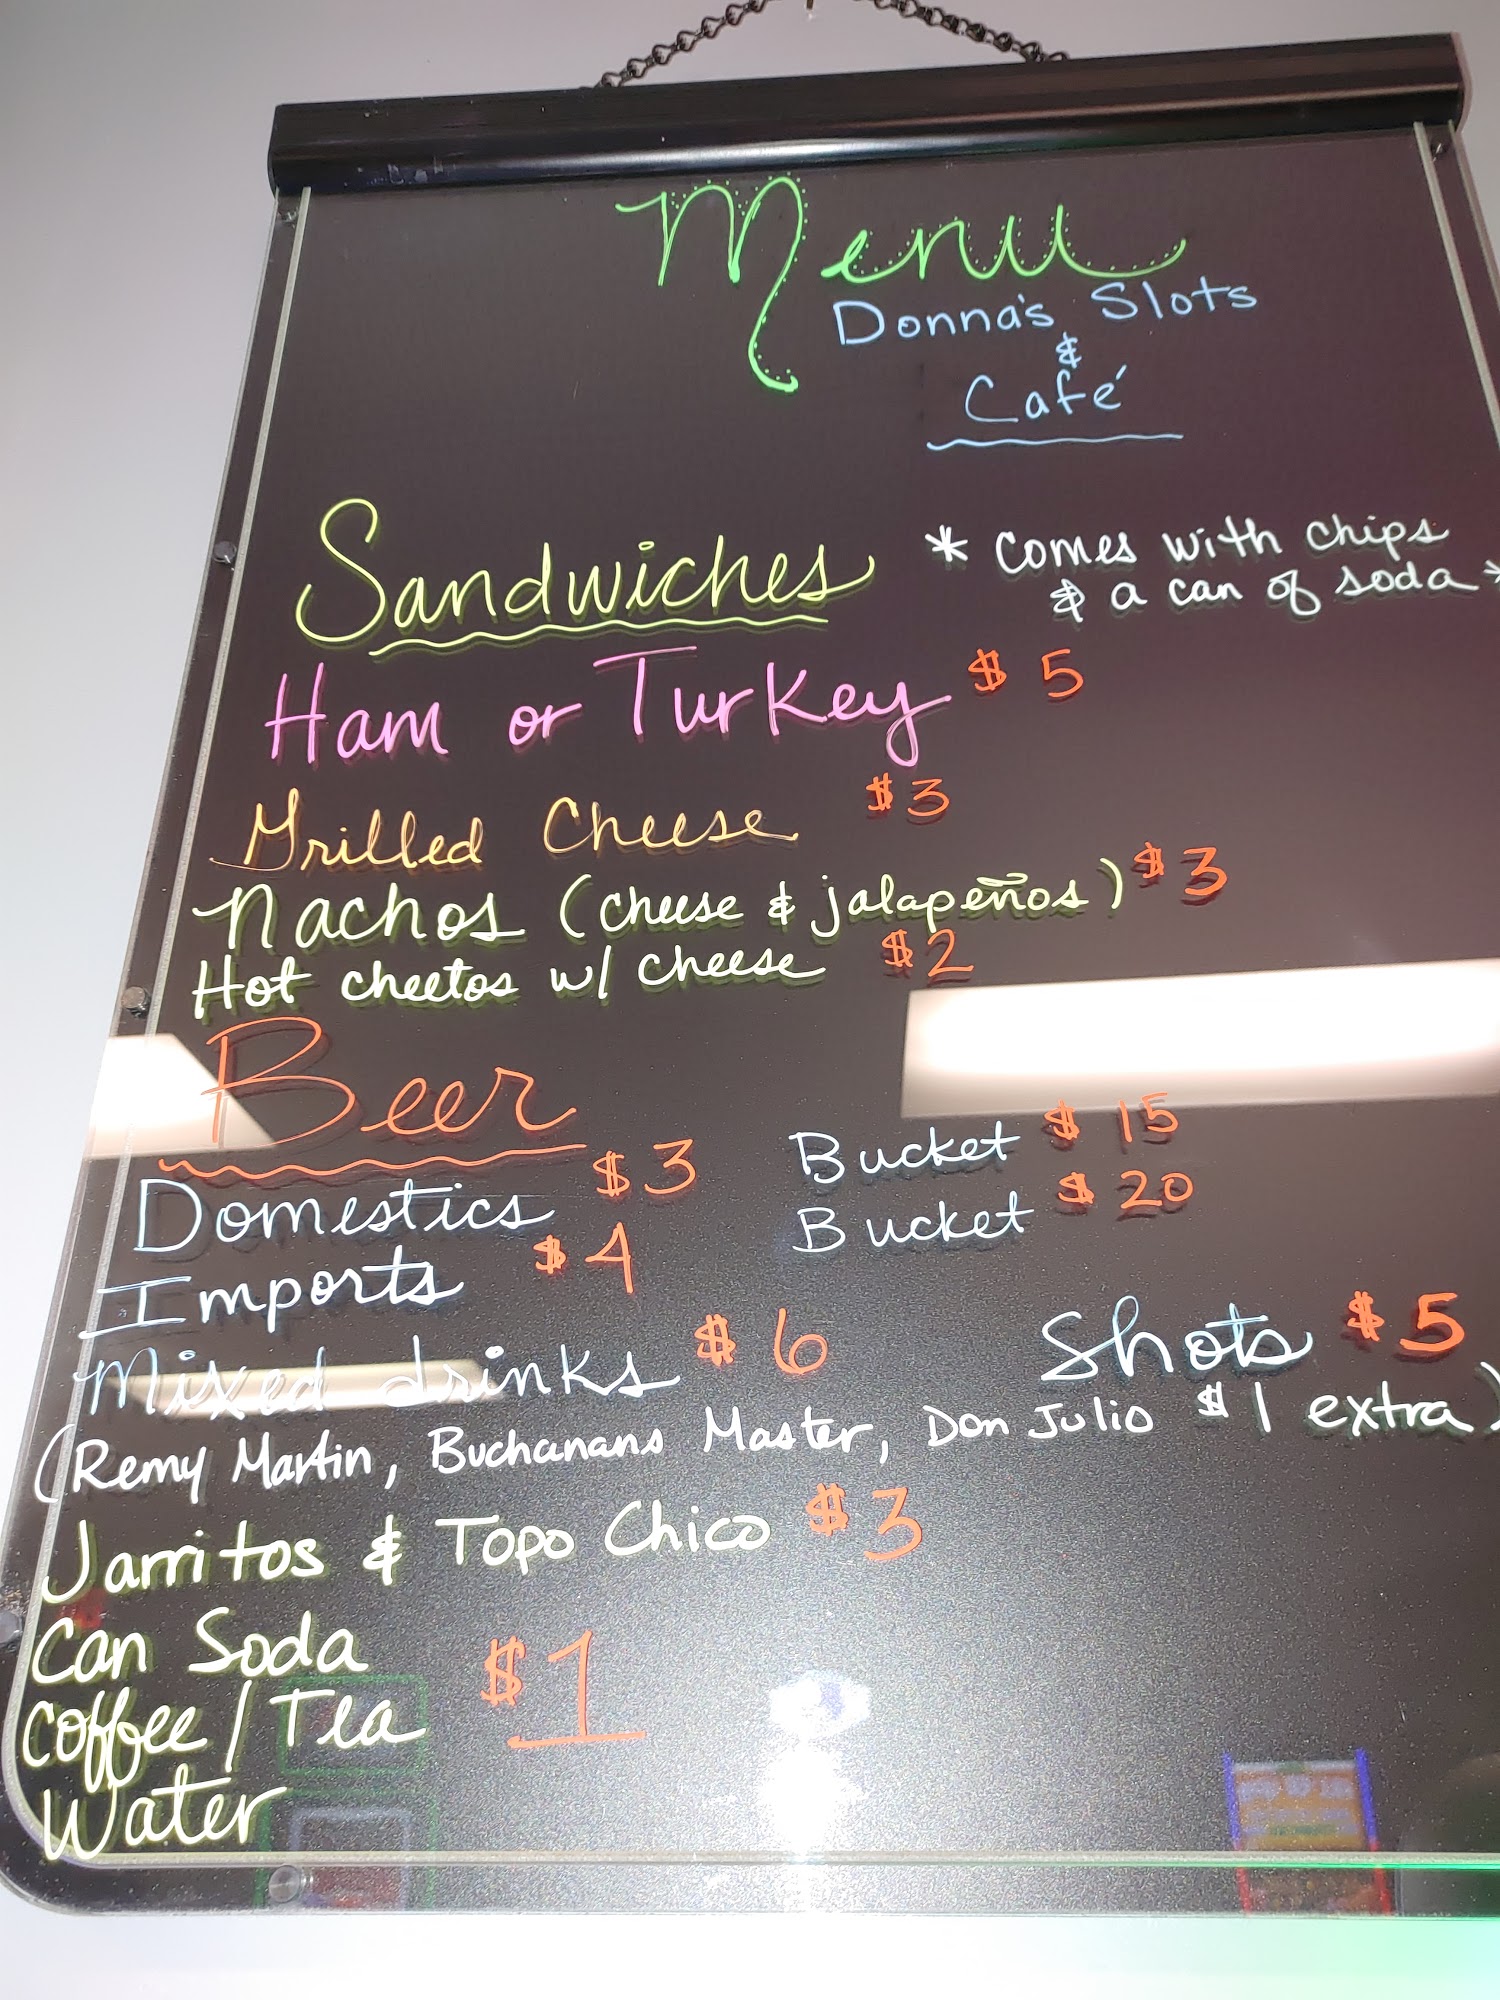 Menu
Donna's Slots
&
Café
Sandwiches * Comes with chips
& a can of soda *
Ham or Turkey $5
Grilled Cheese $3
Nachos (cheese & jalapeños) $3
Hot cheetos w/ cheese $2
Beer
Domestics $3 Bucket $15
Imports $4 Bucket $20
Mixed drinks $6 Shots $5
(Remy Martin, Buchanans Master, Don Julio $1 extra)
Jarritos & Topo Chico $3
Can Soda
Coffee/Tea $1
Water